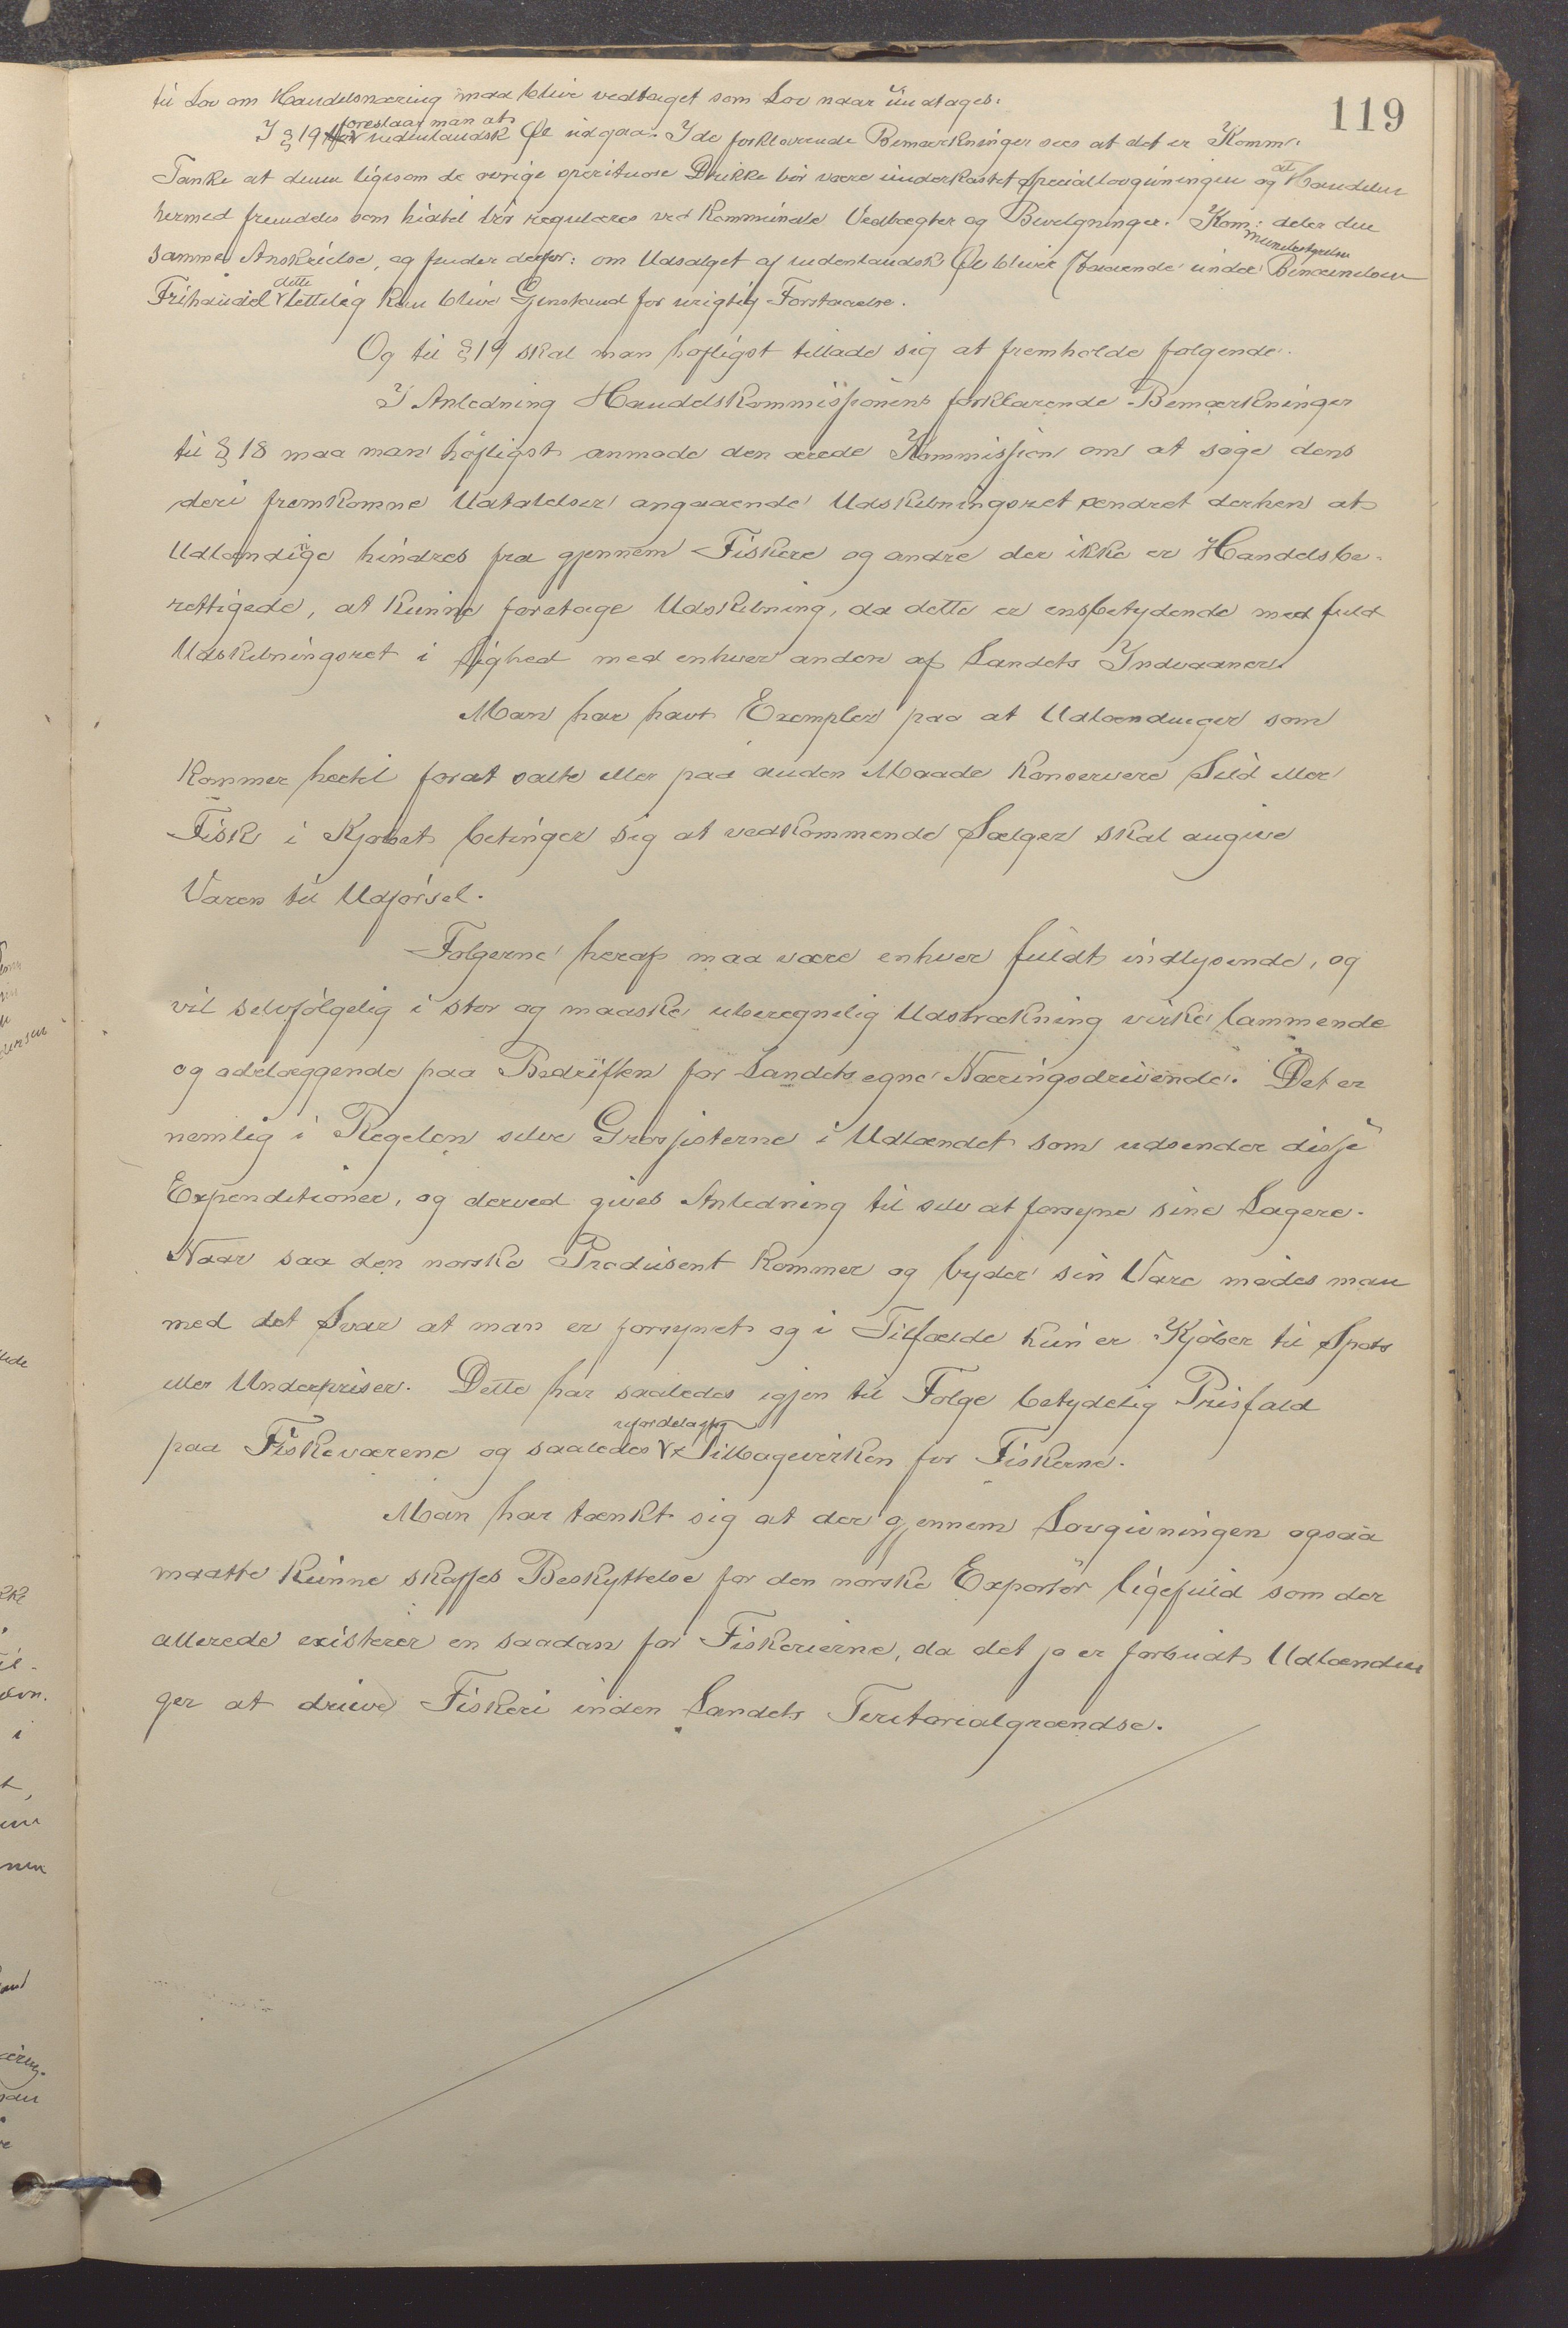 119
til Lov om Handelsnæring maa blive vedtaget som Lov naar undtages:
I § 19 foreslaar man at indenlandsk Øl udgaa. I de forklarende Bemærkninger sees at det er Komm:
Tanke at denne ligesom de øvrige spirituøse Drikke bör være underkastet Speciallovgivningen og at Handelen
hermed fremdeles som hidtil bör reguleres ved Kommunale Vedtægter og Bevilgninger. Kommunestyrelsen deler den
samme Anskuelse, og finder derfor: om Udsalget af indenlandsk Øl bliver staaende under Benævnelsen
Frihandel dette lettelig kan blive Gjenstand for urigtig Forstaaelse.
Og til § 19 skal man høfligst tillade sig at fremholde følgende.
I Anledning Handelskommissionens forklarende Bemærkninger
til § 18 maa man höfligst anmode den ærede Kommission om at söge dens
deri fremkomne Udtalelser angaaende Udskibningsret ændret derhen at
Udlændinge hindres fra gjennem Fiskere og andre der ikke er Handelsbe-
rettigede, at kunne foretage Udskibning, da dette er ensbetydende med fuld
Udskibningsret i Lighed med enhver anden af Landets Indvaaner.
Man har havt Exempler paa at Udlændinger som
kommer hertil forat salte eller paa anden Maade konservere Sild eller
Fisk i Kjøbet betinger sig at vedkommende Sælger skal angive
Varen til Udförsel.
Følgerne heraf maa være enhver fuldt indlysende, og
vil selvfölgelig i stor og maaske uberegnelig Udstrækning virke lammende
og ødelæggende paa Bedriften for Landets egne Næringsdrivende. Det er
nemlig i Regelen selve Grossisterne i Udlandet som udsender disse
Expenditioner, og derved gives Anledning til selv at forsyne sine Lagere.
Naar saa den norske Produsent kommer og byder sin Vare mødes man
med det Svar at man er forsynet og i Tilfælde kun er Kjöber til Spots
eller Underpriser. Dette har saaledes igjen til Følge betydelig Prisfald
paa Fiskeværene og saaledes ufordelagtig Tilbagevirken for Fiskerne.
Man har tænkt sig at der gjennem Lovgivningen ogsaa
maatte kunne skaffes Beskyttelse for den norske Exportör ligefuld som der
allerede existerer en saadan for Fiskerierne, da det jo er forbudt Udlændin
ger at drive Fiskeri inden Landets Teritorialgrændse.